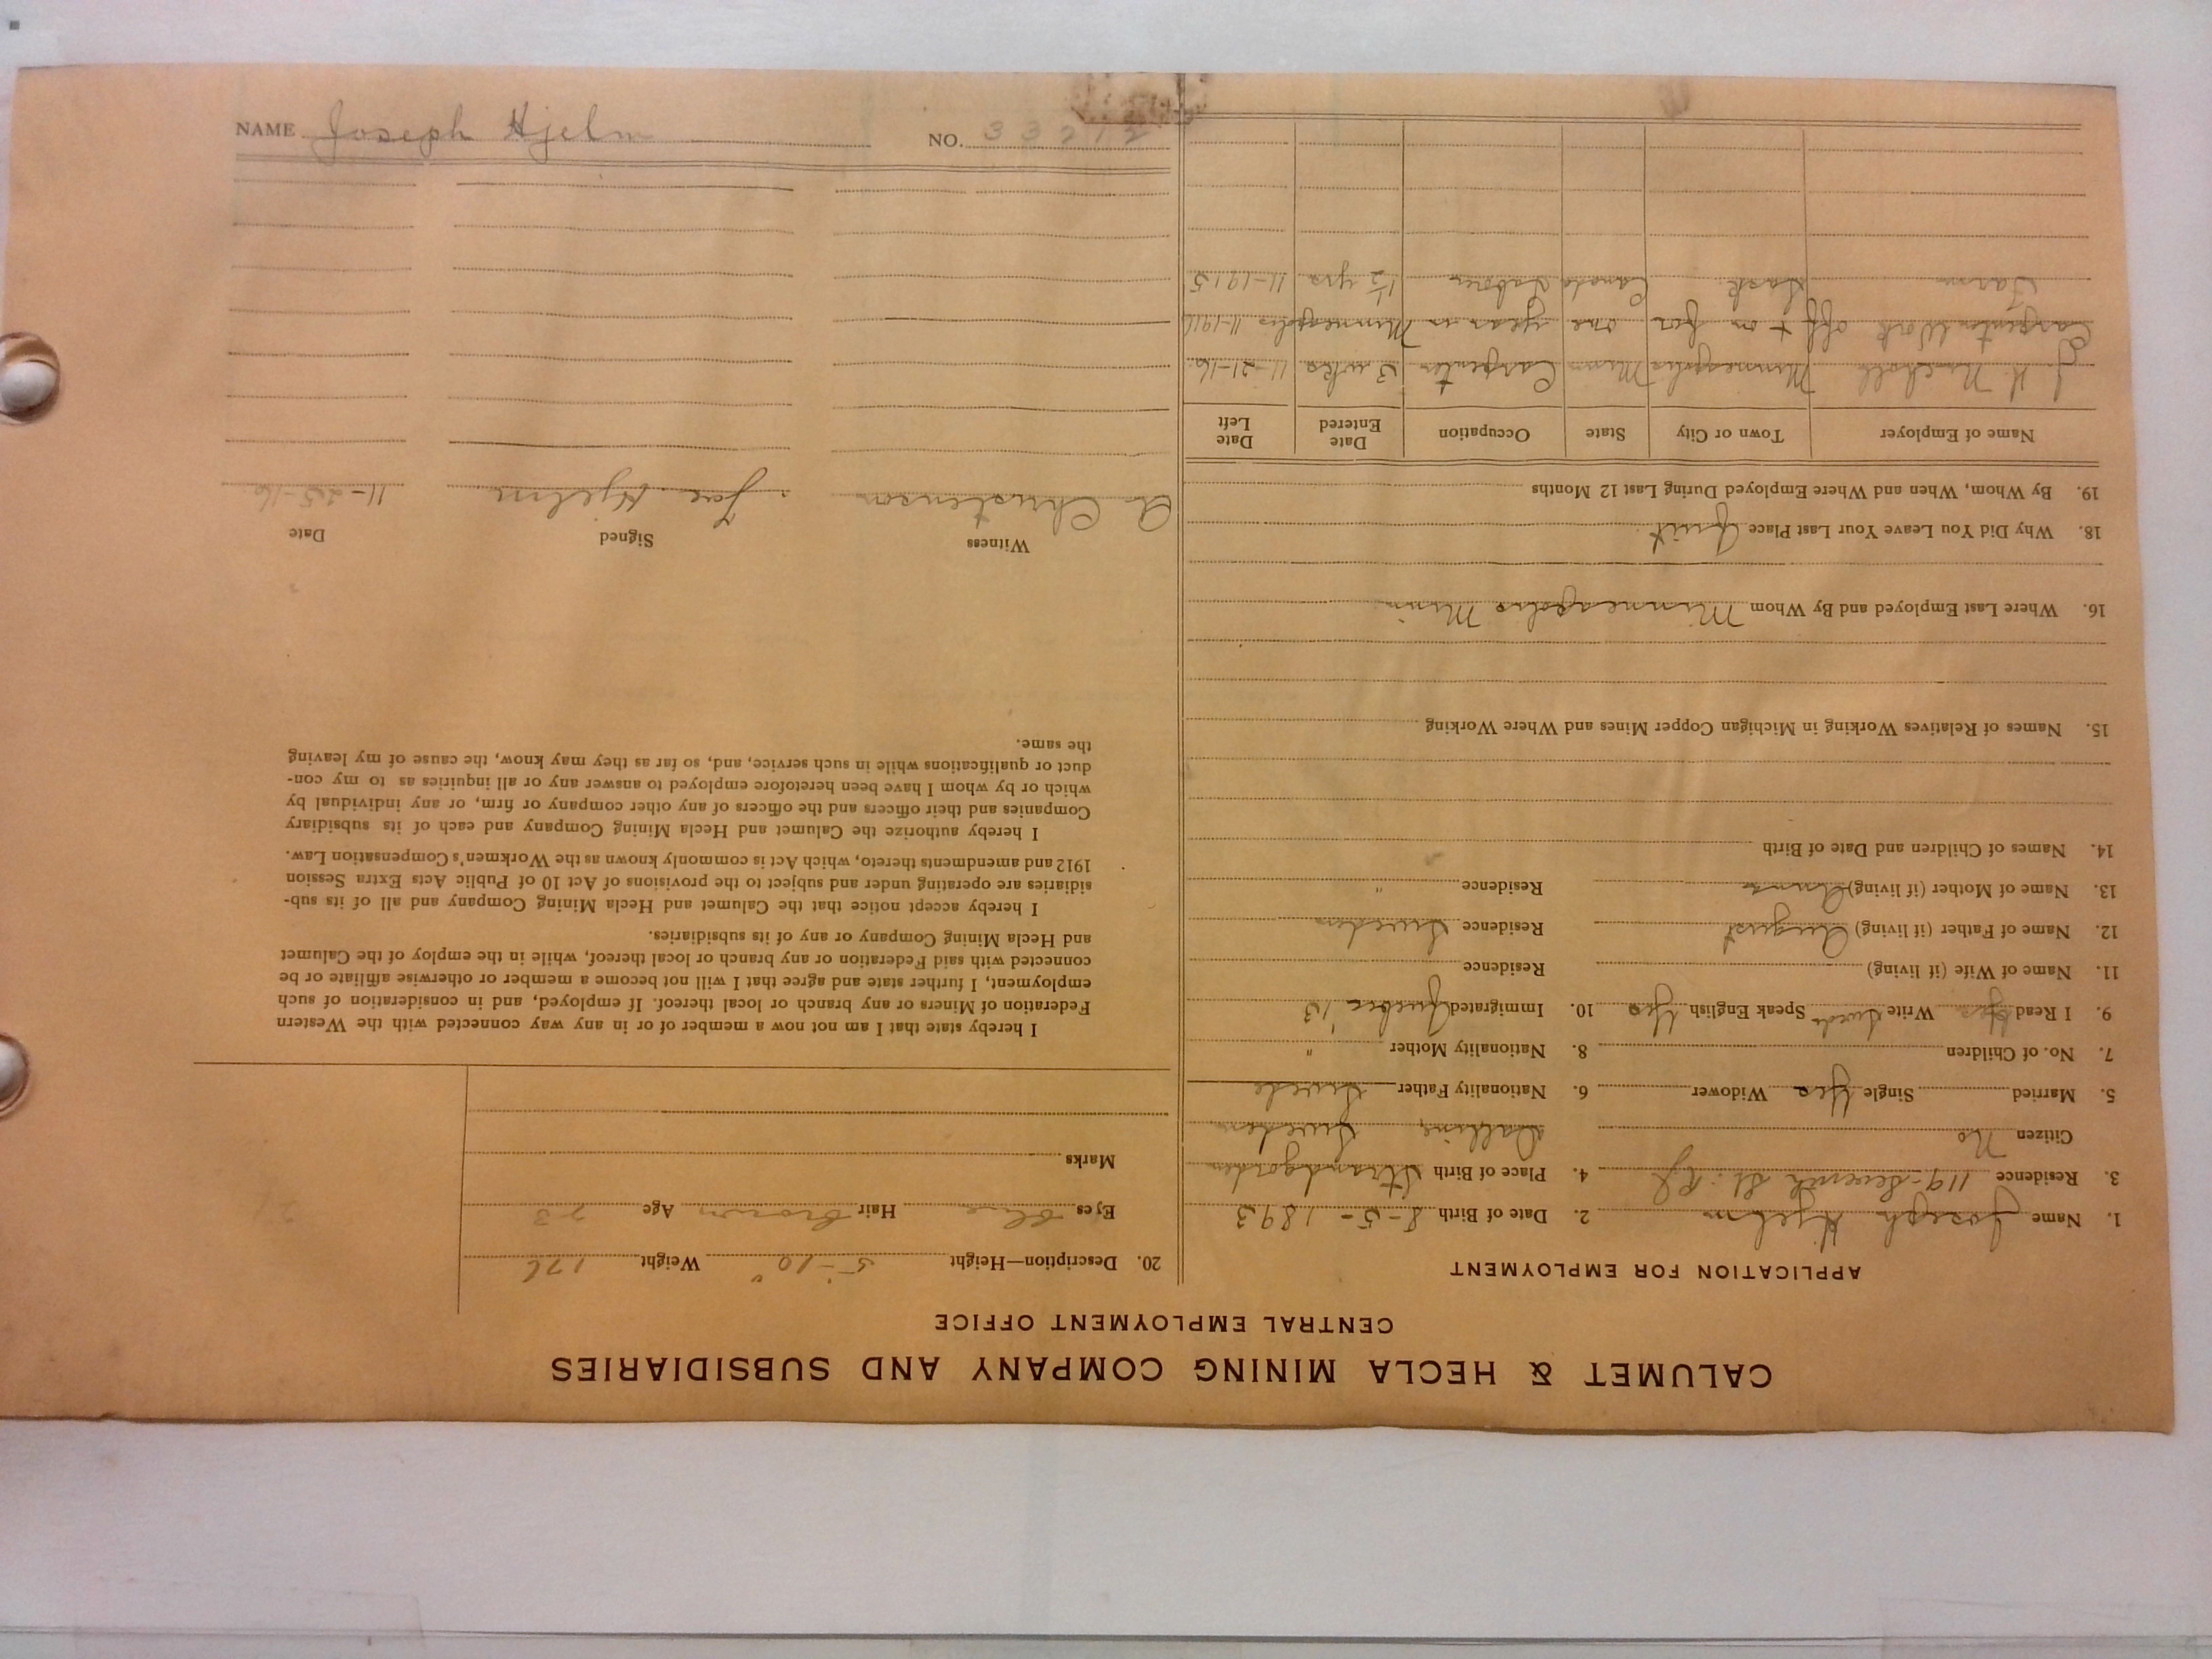 NAME Joseph Hjelm NO. 33212
CALUMET & HECLA MINING COMPANY AND SUBSIDIARIES
CENTRAL EMPLOYMENT OFFICE
APPLICATION FOR EMPLOYMENT
1. Name Joseph Hjelm 2. Date of Birth 8-5-1893
3. Residence 119-Seventh St. 4. Place of Birth
Citizen No Sweden
5. Married Single Yes Widower 6. Nationality Father Swede
7. No. of Children 8. Nationality Mother "
9. I Read Yes Write Swede Speak English Yes 10. Immigrated Quebec '13
11. Name of Wife (if living) Residence
12. Name of Father (if living) August Residence Sweden
13. Name of Mother (if living) Residence "
14. Names of Children and Date of Birth
15. Names of Relatives Working in Michigan Copper Mines and Where Working
16. Where Last Employed and By Whom Minneapolis Minn.
18. Why Did You Leave Your Last Place Quit.
19. By Whom, When and Where Employed During Last 12 Months
Name of Employer Town or City State Occupation Date Entered Date Left
Minneapolis Minn Carpenter 3 wks 11-21-16.
Carpenter Work off + on for one year in Minneapolis 11-1916
Farm Sask. Canada Laborer 1½ yrs 11-1915
20. Description—Height 5'-10" Weight 176
Eyes blue Hair Brown Age 23
Marks
I hereby state that I am not now a member of or in any way connected with the Western
Federation of Miners or any branch or local thereof. If employed, and in consideration of such
employment, I further state and agree that I will not become a member or otherwise affiliate or be
connected with said Federation or any branch or local thereof, while in the employ of the Calumet
and Hecla Mining Company or any of its subsidiaries.
I hereby accept notice that the Calumet and Hecla Mining Company and all of its sub-
sidiaries are operating under and subject to the provisions of Act 10 of Public Acts Extra Session
1912 and amendments thereto, which Act is commonly known as the Workmen's Compensation Law.
I hereby authorize the Calumet and Hecla Mining Company and each of its subsidiary
Companies and their officers and the officers of any other company or firm, or any individual by
which or by whom I have been heretofore employed to answer any or all inquiries as to my con-
duct or qualifications while in such service, and, so far as they may know, the cause of my leaving
the same.
Witness Signed Date
A Christenson Joe. Hjelm 11-25-16.